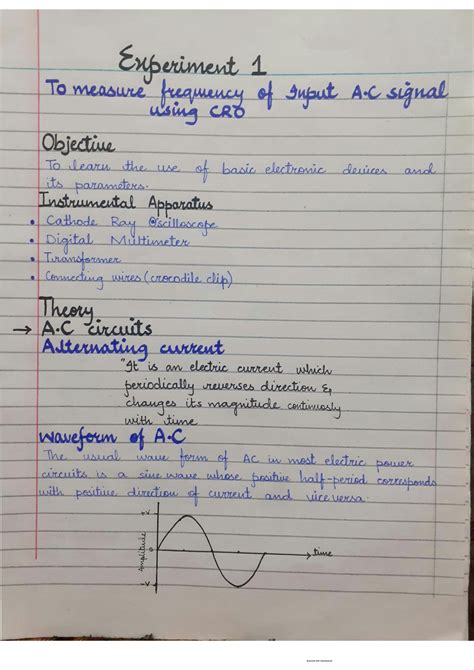 Experiment 1
To measure frequency of Input A.C signal
using CRO
Objective
To learn the use of basic electronic devices and
its parameters.
Instrumental Apparatus
• Cathode Ray Oscilloscope
• Digital Multimeter
• Transformer
• Connecting wires (crocodile clip)
Theory
→ A.C circuits
Alternating current
"It is an electric current which
periodically reverses direction &
changes its magnitude continuously
with time
Waveform of A.C
The usual wave form of AC in most electric power
circuits is a sine wave whose positive half-period corresponds
with positive direction of current and vice versa.
+V
Amplitude
0
time
-V